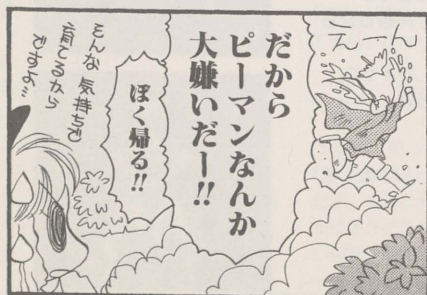 えーん
だから
ピーマンなんか
大嫌いだー!!
ぼく帰る!!
そんな気持ちで
育てるから
ですよ!!